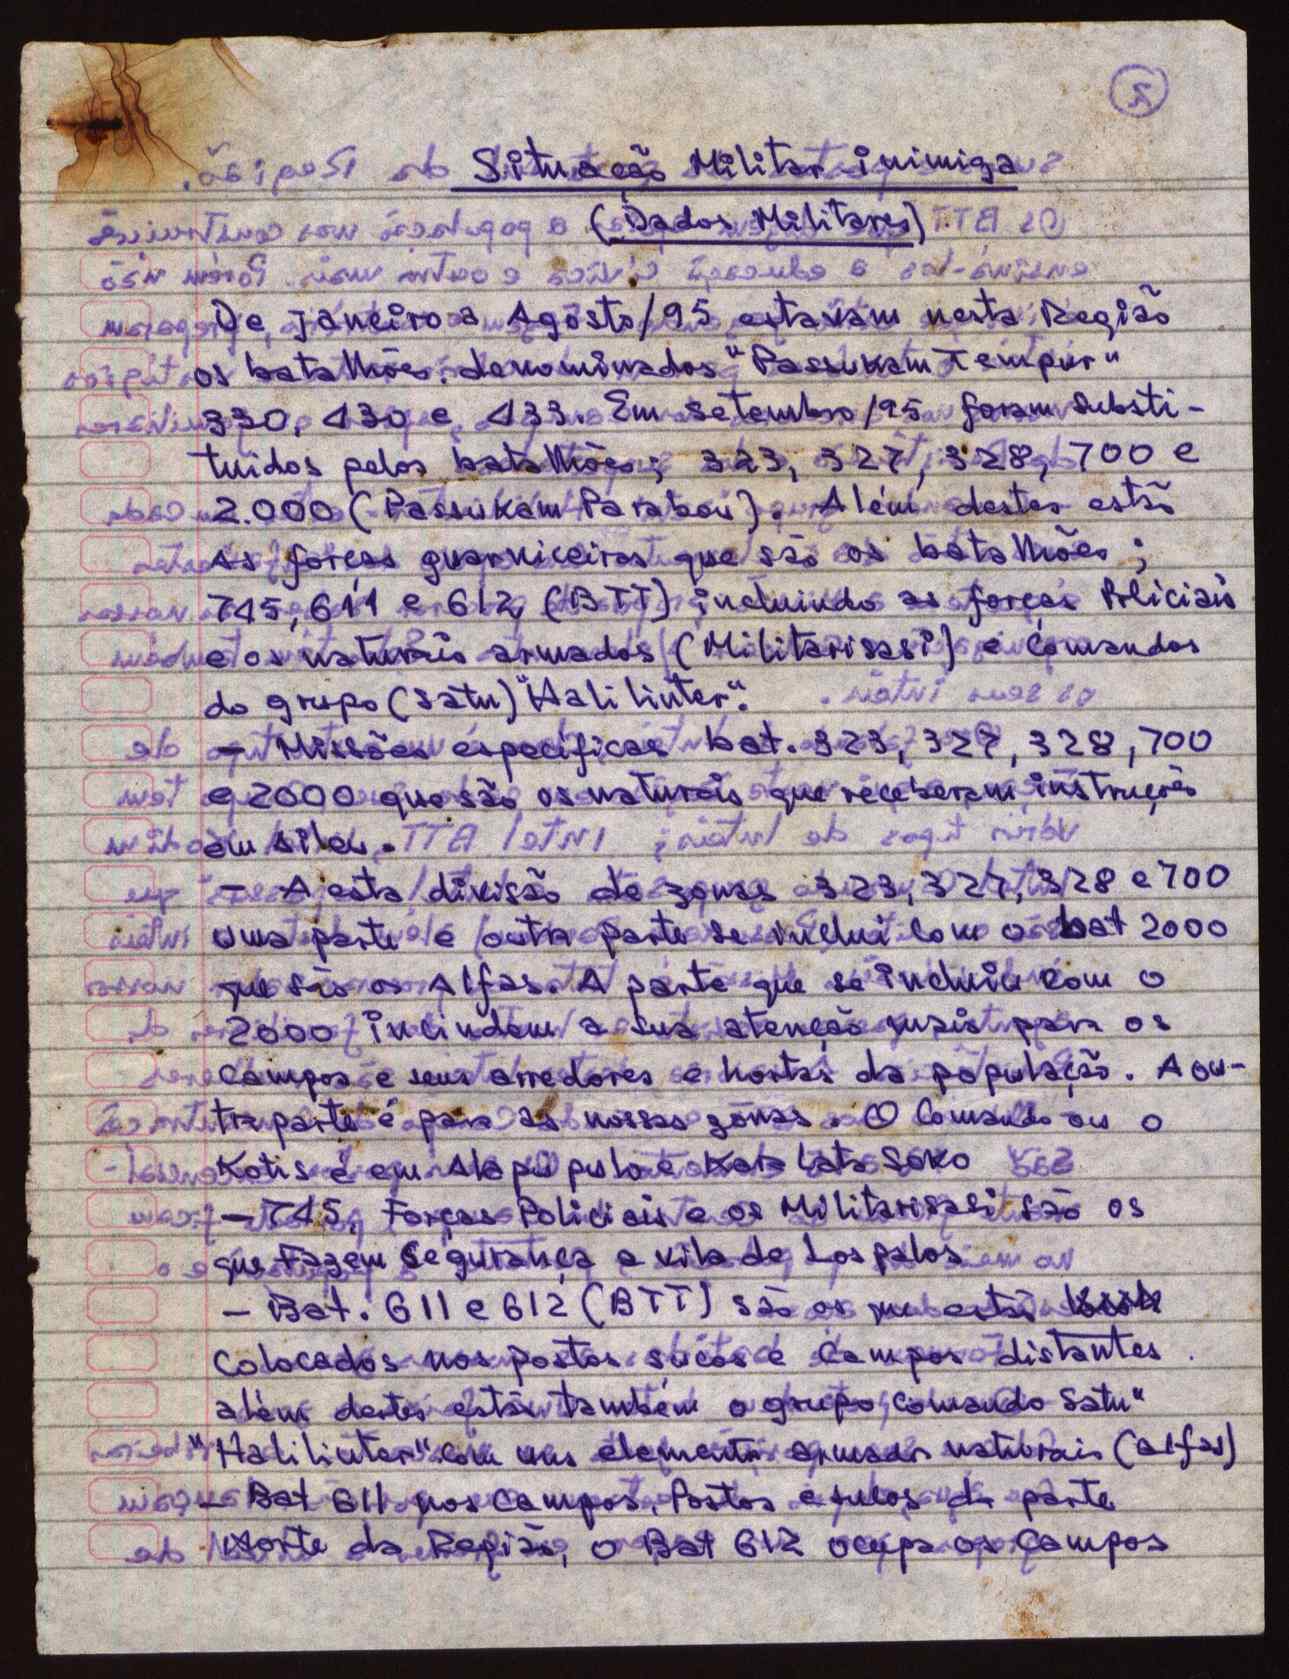 2
Situação Militar inimiga
(Dados Militares)
De janeiro a Agôsto/95 estavam nesta Região
os batalhões denominados "Passukam Tempur"
330, 430 e 433. Em Setembro/95 foram Substi-
tuidos pelos batalhões; 323, 327, 328, 700 e
2.000 (Passukam Parabou). Além destes estão
as forças guarniceiras que são os batalhões;
745, 611 e 612, (BTT), incluindo as forças Policiais
e os naturais armados (Militarisasi) e Comandos
do grupo (Satu) "Halilinter".
- Missões especificas bat. 323, 327, 328, 700
e 2000 que são os naturais que receberam instruções
em
- A esta divisão de zonas 323, 327, 328 e 700
uma parte e outra parte se inclui com o bat 2000
que são os Alfas. A parte que se incluiu com o
2000 incindem a sua atenção mais para os
Campos e seus arredores e hortas da população. A ou-
tra parte é para as nossas zonas. O Comando ou o
Kotis é em e
- 745, Forças Policiais e os Militarisasi são os
que Fazem Segurança a vila de Lospalos
- Bat. 611 e 612 (BTT) são os que estão
Colocados nos postos sucos e Campos distantes.
além destes estão também o grupo comando Satu"
"Halilinter" com uns elementos armados naturais (alfas)
- Bat 611 nos Campos, Postos e sucos da parte
Norte da Região, o Bat 612 ocupa os Campos